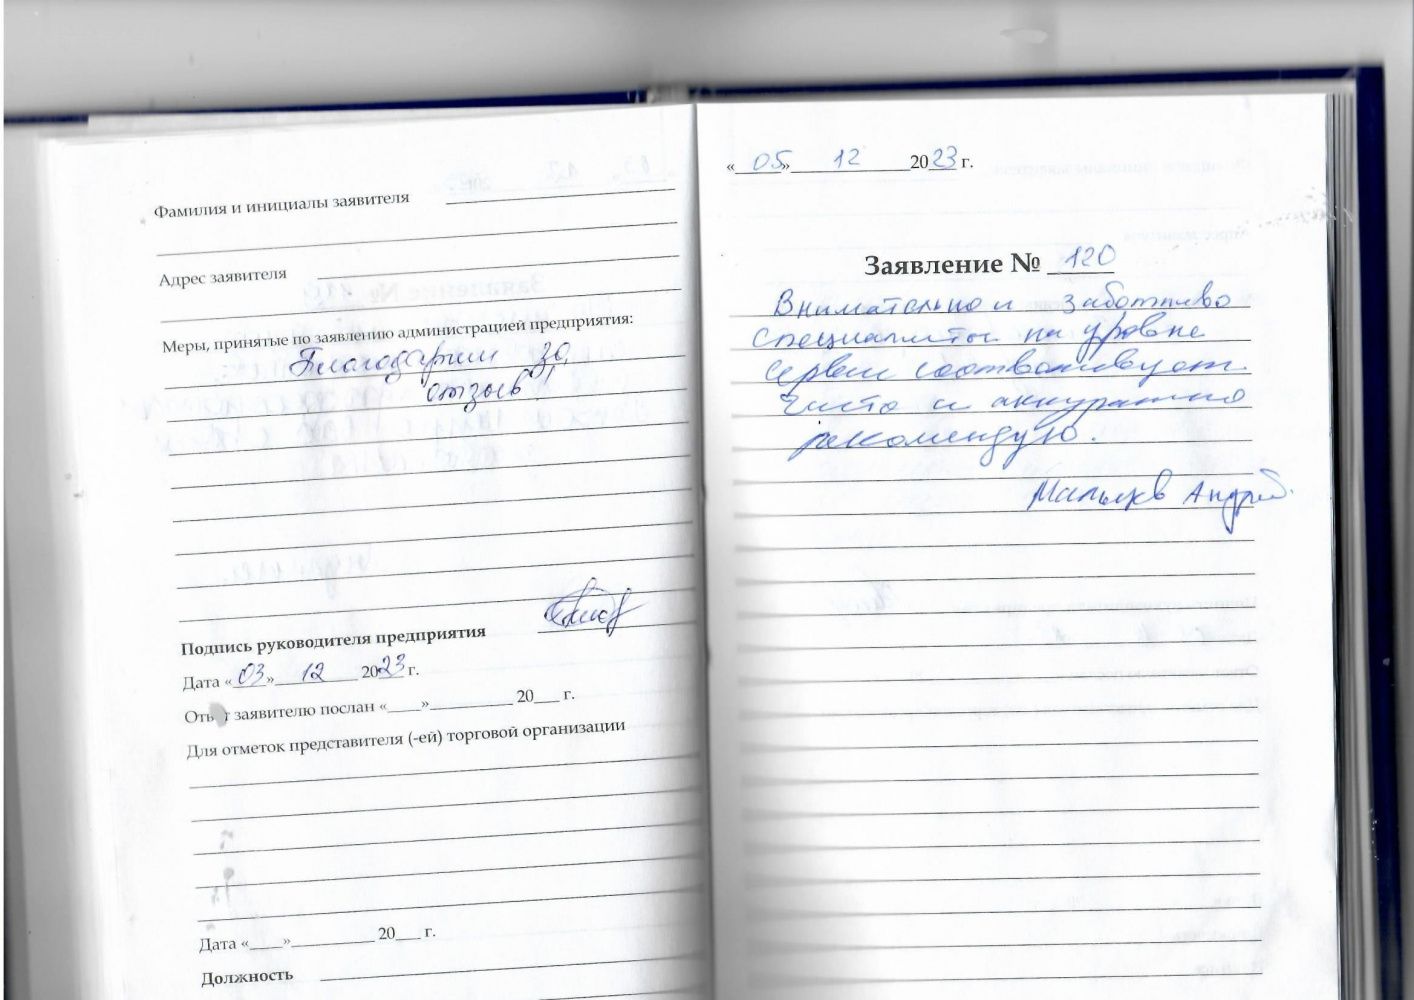 Фамилия и инициалы заявителя
Адрес заявителя
Меры, принятые по заявлению администрацией предприятия:
Благодарим за
отзыв!
Подпись руководителя предприятия
Дата «03» 12 2023 г.
Ответ заявителю послан «____»__________ 20___ г.
Для отметок представителя (-ей) торговой организации
Дата «____»__________ 20___ г.
Должность
«05» 12 2023 г.
Заявление № 120
Внимательно и заботливо
специалисты на уровне
сервис соответствует.
Чисто и аккуратно
рекомендую.
Андрей